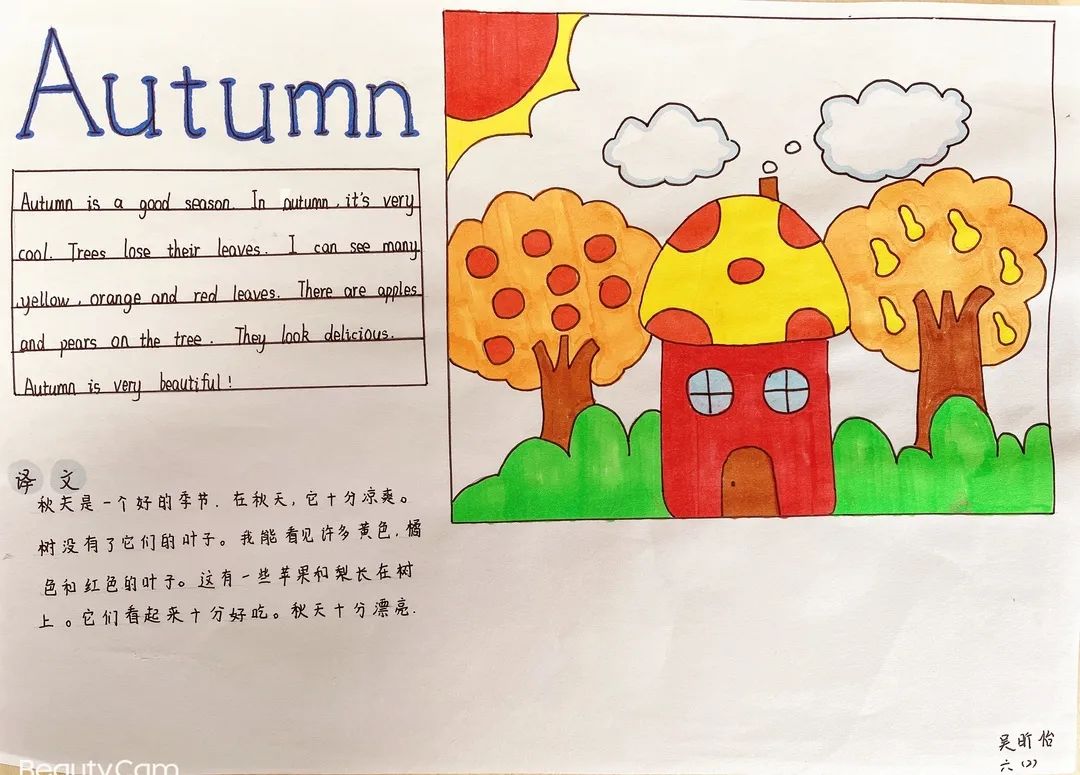 Autumn
Autumn is a good season. In autumn, it's very
cool. Trees lose their leaves. I can see many
yellow, orange and red leaves. There are apples
and pears on the tree. They look delicious.
Autumn is very beautiful!
译文
秋天是一个好的季节. 在秋天,它十分凉爽。
树没有了它们的叶子。我能看见许多黄色,橘
色和红色的叶子。这有一些苹果和梨长在树
上。它们看起来十分好吃。秋天十分漂亮.
吴昕怡
六(2)
BeautyCam